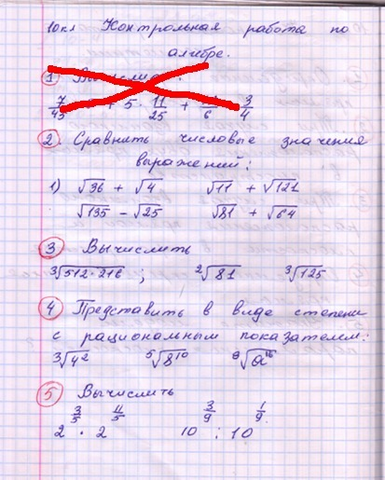 10кл Контрольная работа по
алгебре.
1
7/45 + 5 · 11/25 + 3/4
2 Сравнить числовые значения
выражений:
1) √36 + √4 √11 + √121
√135 - √25 √81 + √64
3 Вычислить
³√512·216 ; ²√81 ³√125
4 Представить в виде степени
с рациональным показателем:
³√4² ⁵√8¹⁰ ⁹√a¹⁶
5 Вычислить
2^(3/5) · 2^(11/5) 10^(3/9) : 10^(1/9)